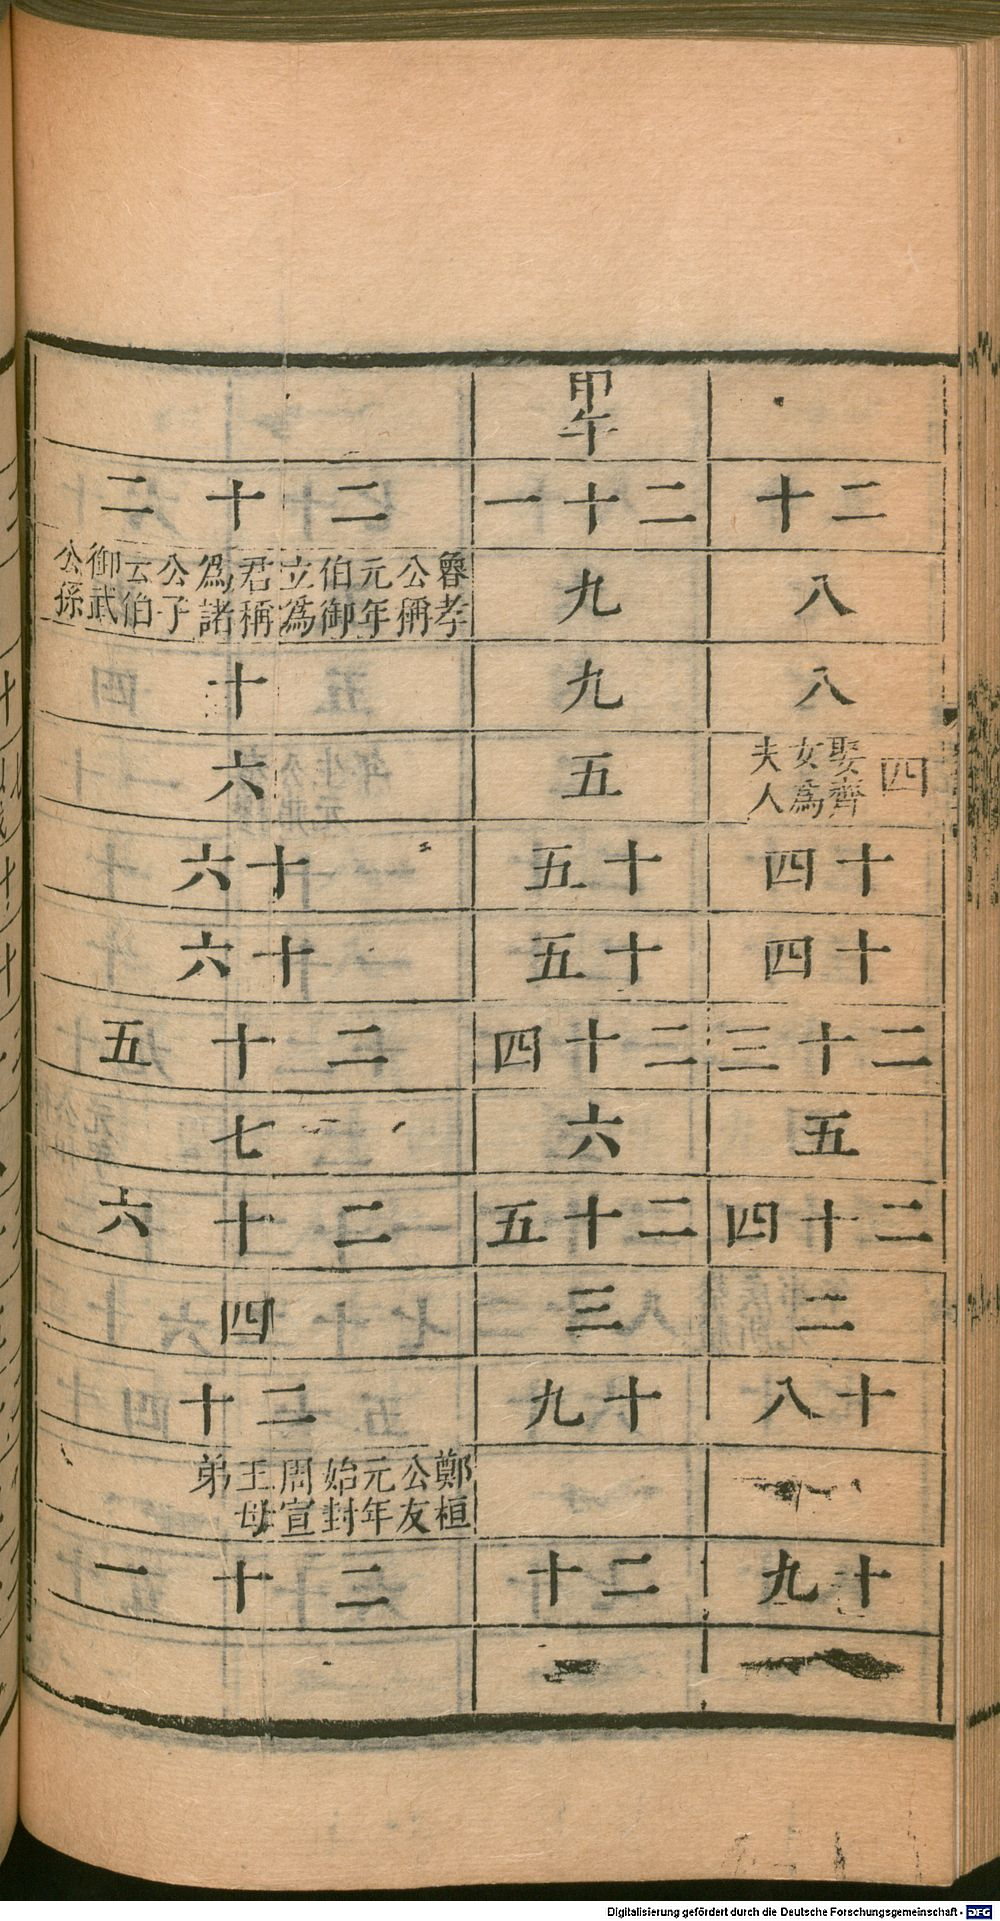 二十
八
八
四娶齊女爲夫人
十四
十四
二十三
五
二十四
二
十八
十九
甲午
二十一
九
九
五
十五
十五
二十四
六
二十五
三
十九
二十
二十二
魯孝公稱元年伯御立爲君稱爲諸公子云伯御武公孫
十
六
十六
十六
二十五
七
二十六
四
二十
鄭桓公友元年始封周宣王母弟
二十一
Digitalisierung gefördert durch die Deutsche Forschungsgemeinschaft - DFG